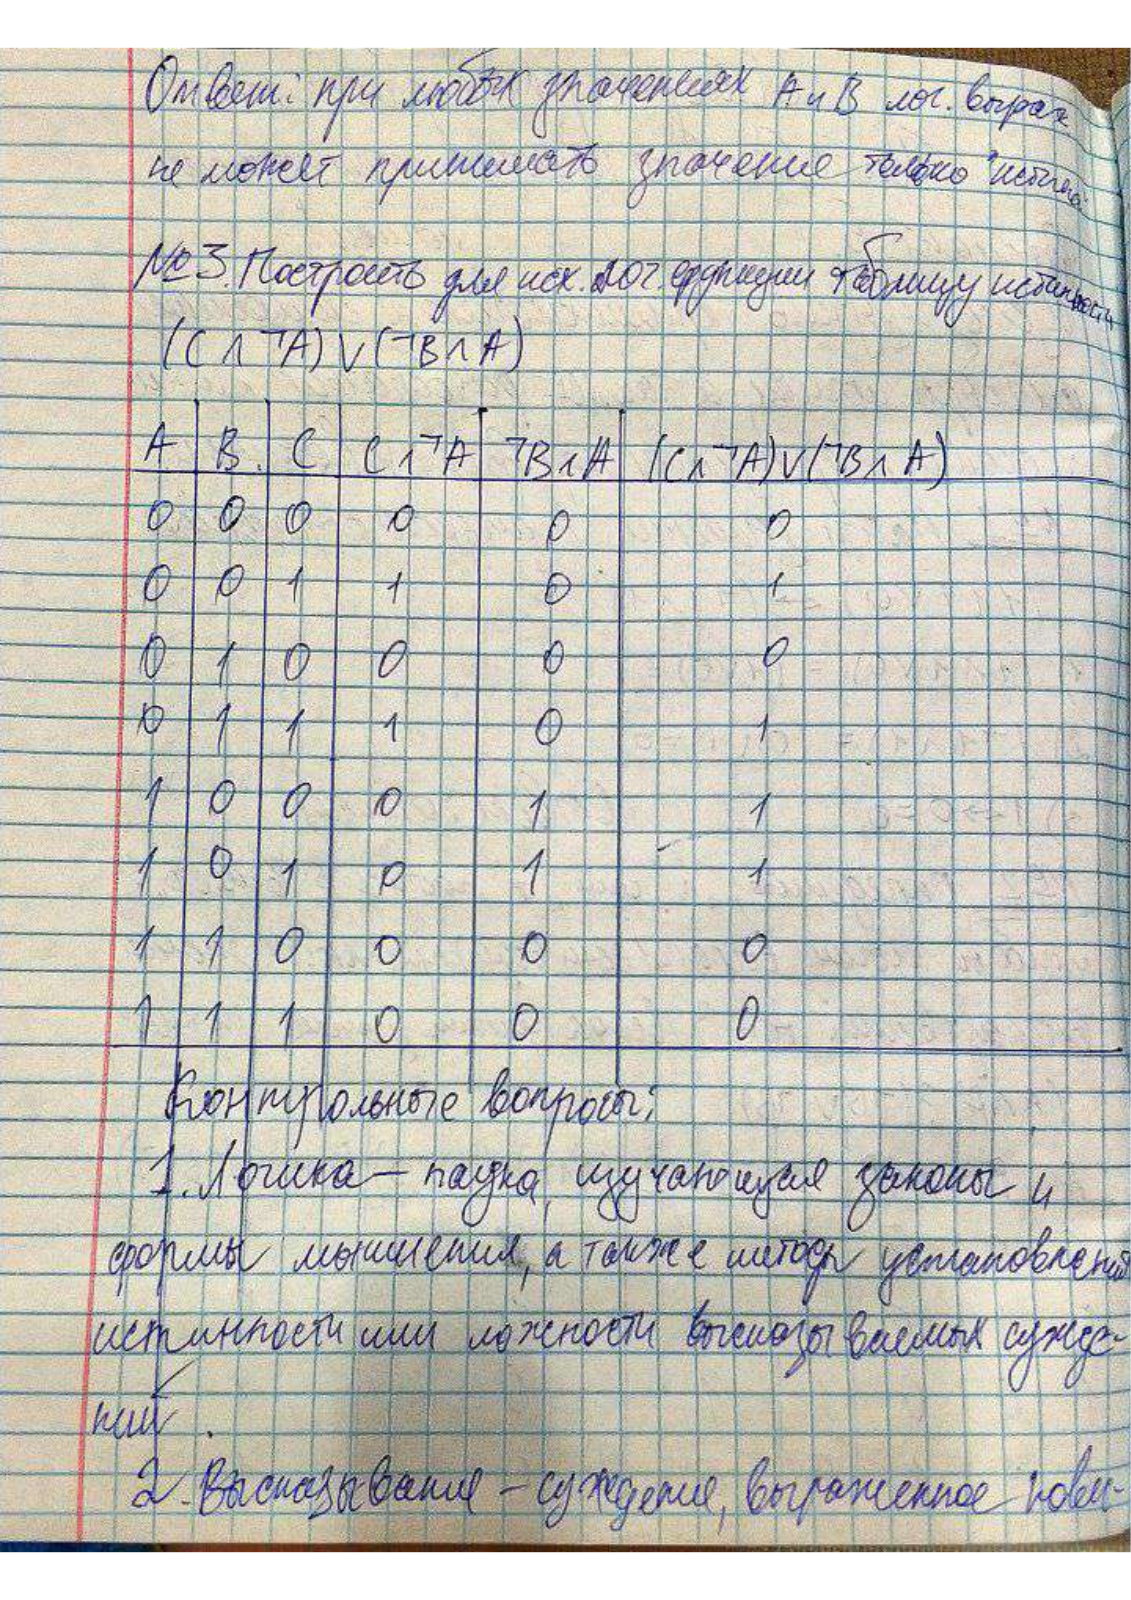 Ответ: при любых значениях А и В лог. выраж
не может принимать значение только "истина"
№3. Построить для исх. лог. функции таблицу истинности
(C ∧ ¬A) ∨ (¬B ∧ A)
A B C C ∧ ¬A ¬B ∧ A (C ∧ ¬A) ∨ (¬B ∧ A)
0 0 0 0 0 0
0 0 1 1 0 1
0 1 0 0 0 0
0 1 1 1 0 1
1 0 0 0 1 1
1 0 1 0 1 1
1 1 0 0 0 0
1 1 1 0 0 0
Контрольные вопросы:
1. Логика – наука, изучающая законы и
формы мышления, а также методы установления
истинности или ложности высказываемых сужде-
ний.
2. Высказывание – суждение, выраженное пове-